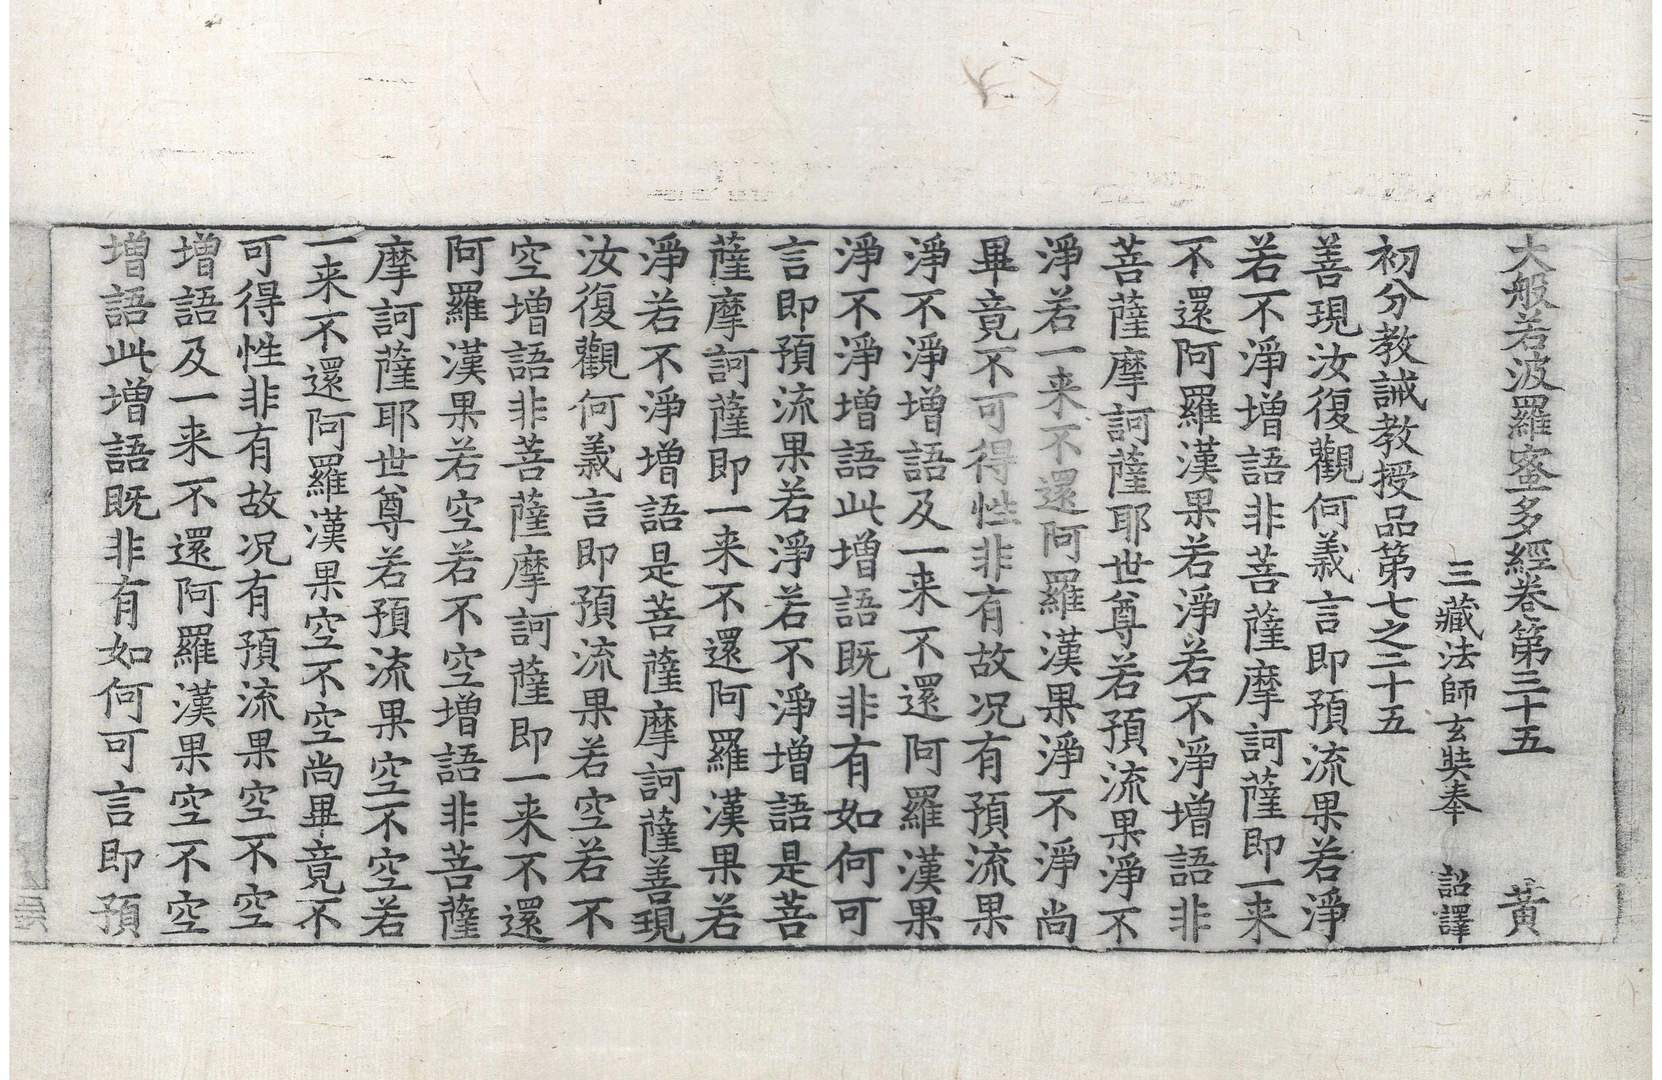 大般若波羅蜜多經卷第三十五 黃
三藏法師玄奘奉 詔譯
初分教誡教授品第七之二十五
善現汝復觀何義言即預流果若淨
若不淨增語非菩薩摩訶薩即一来
不還阿羅漢果若淨若不淨增語非
菩薩摩訶薩耶世尊若預流果淨不
淨若一来不還阿羅漢果淨不淨尚
畢竟不可得性非有故况有預流果
淨不淨增語及一来不還阿羅漢果
淨不淨增語此增語既非有如何可
言即預流果若淨若不淨增語是菩
薩摩訶薩即一来不還阿羅漢果若
淨若不淨增語是菩薩摩訶薩善現
汝復觀何義言即預流果若空若不
空增語非菩薩摩訶薩即一来不還
阿羅漢果若空若不空增語非菩薩
摩訶薩耶世尊若預流果空不空若
一来不還阿羅漢果空不空尚畢竟不
可得性非有故况有預流果空不空
增語及一来不還阿羅漢果空不空
增語此增語既非有如何可言即預